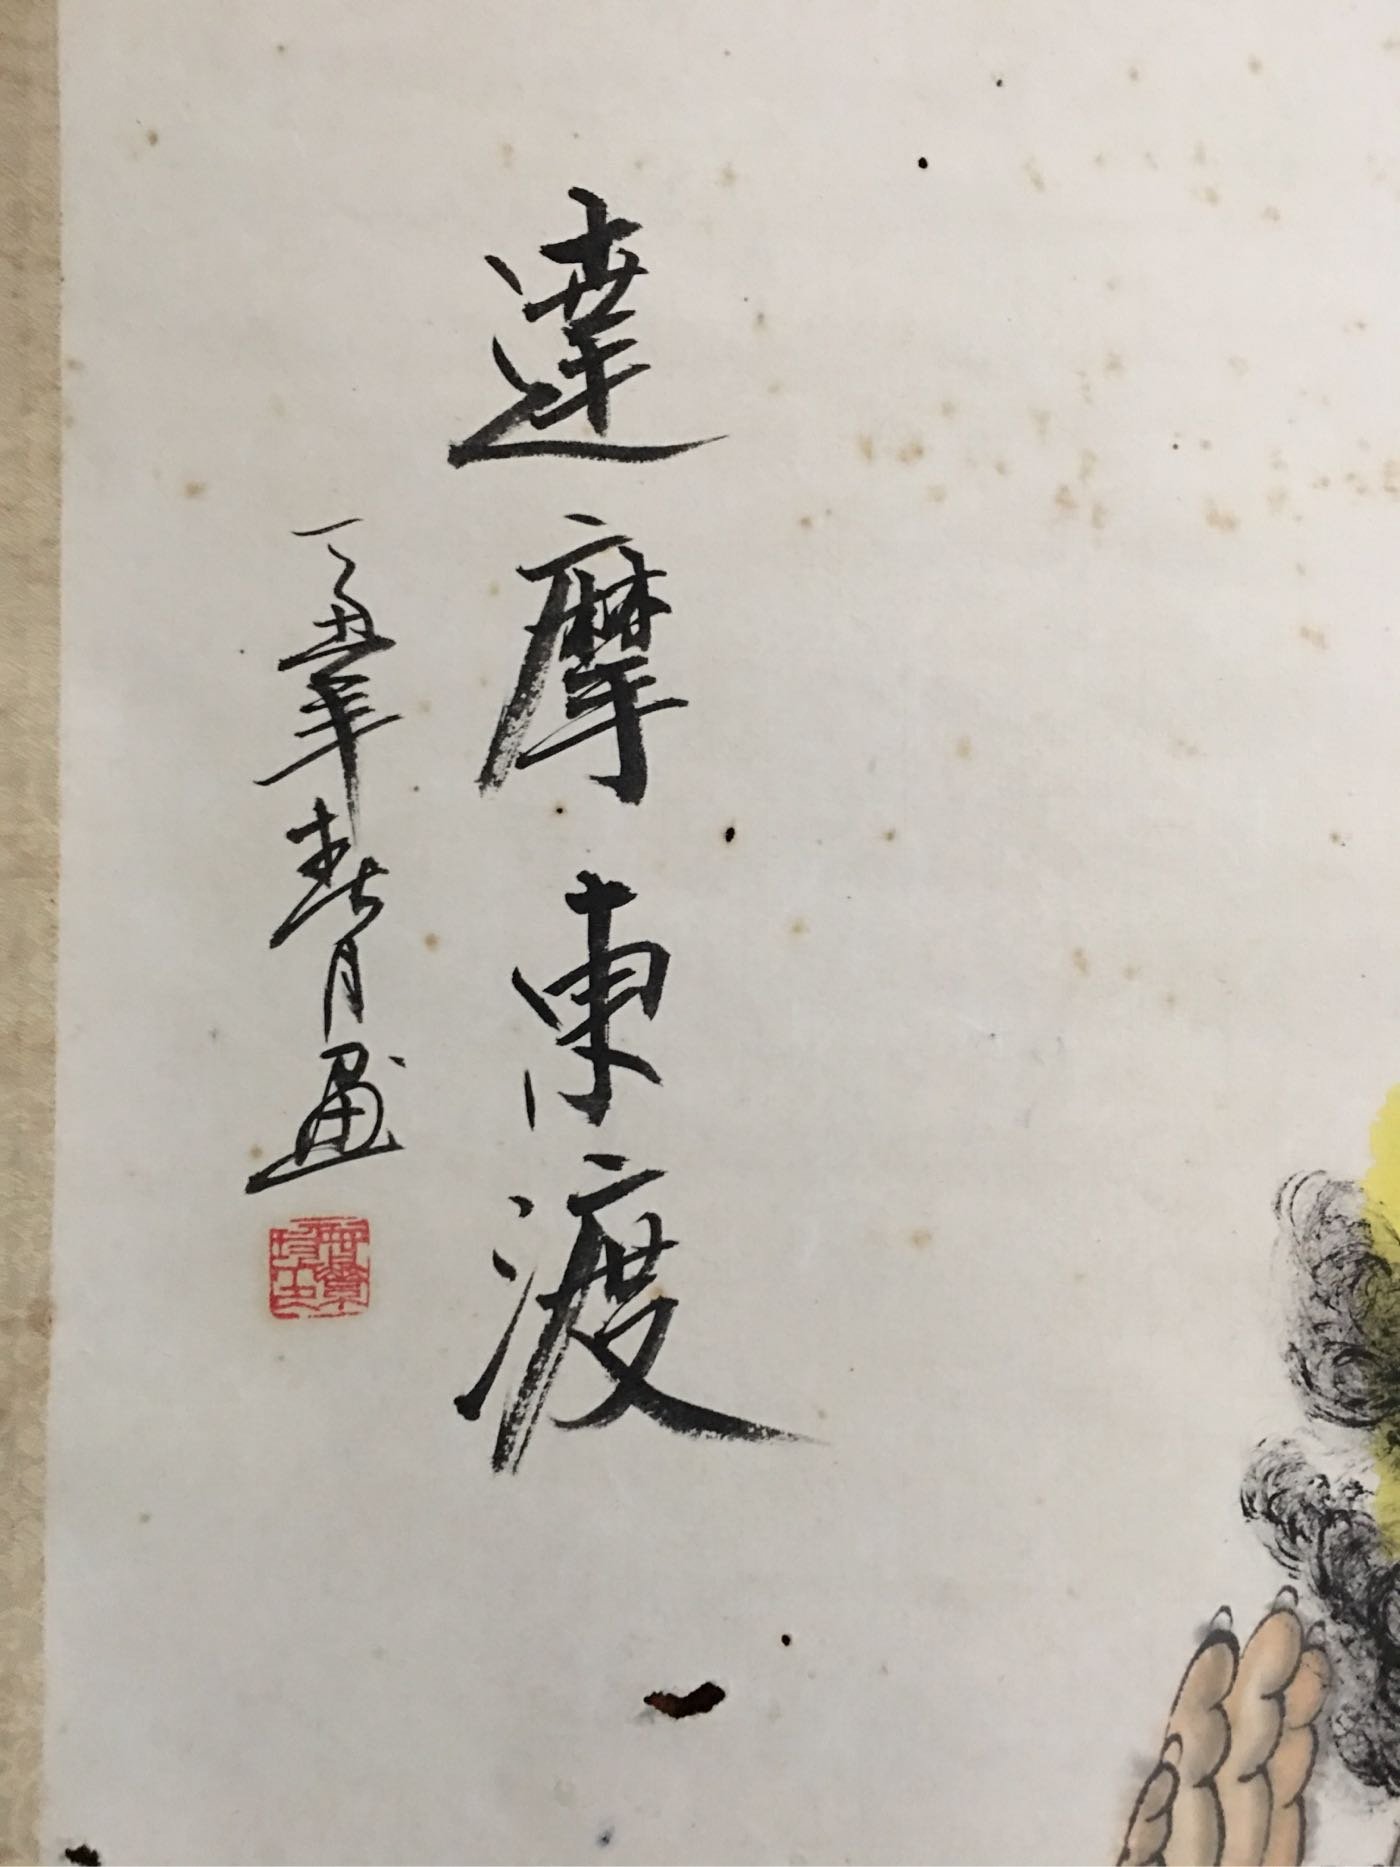 達摩東渡
丁丑年春月畫